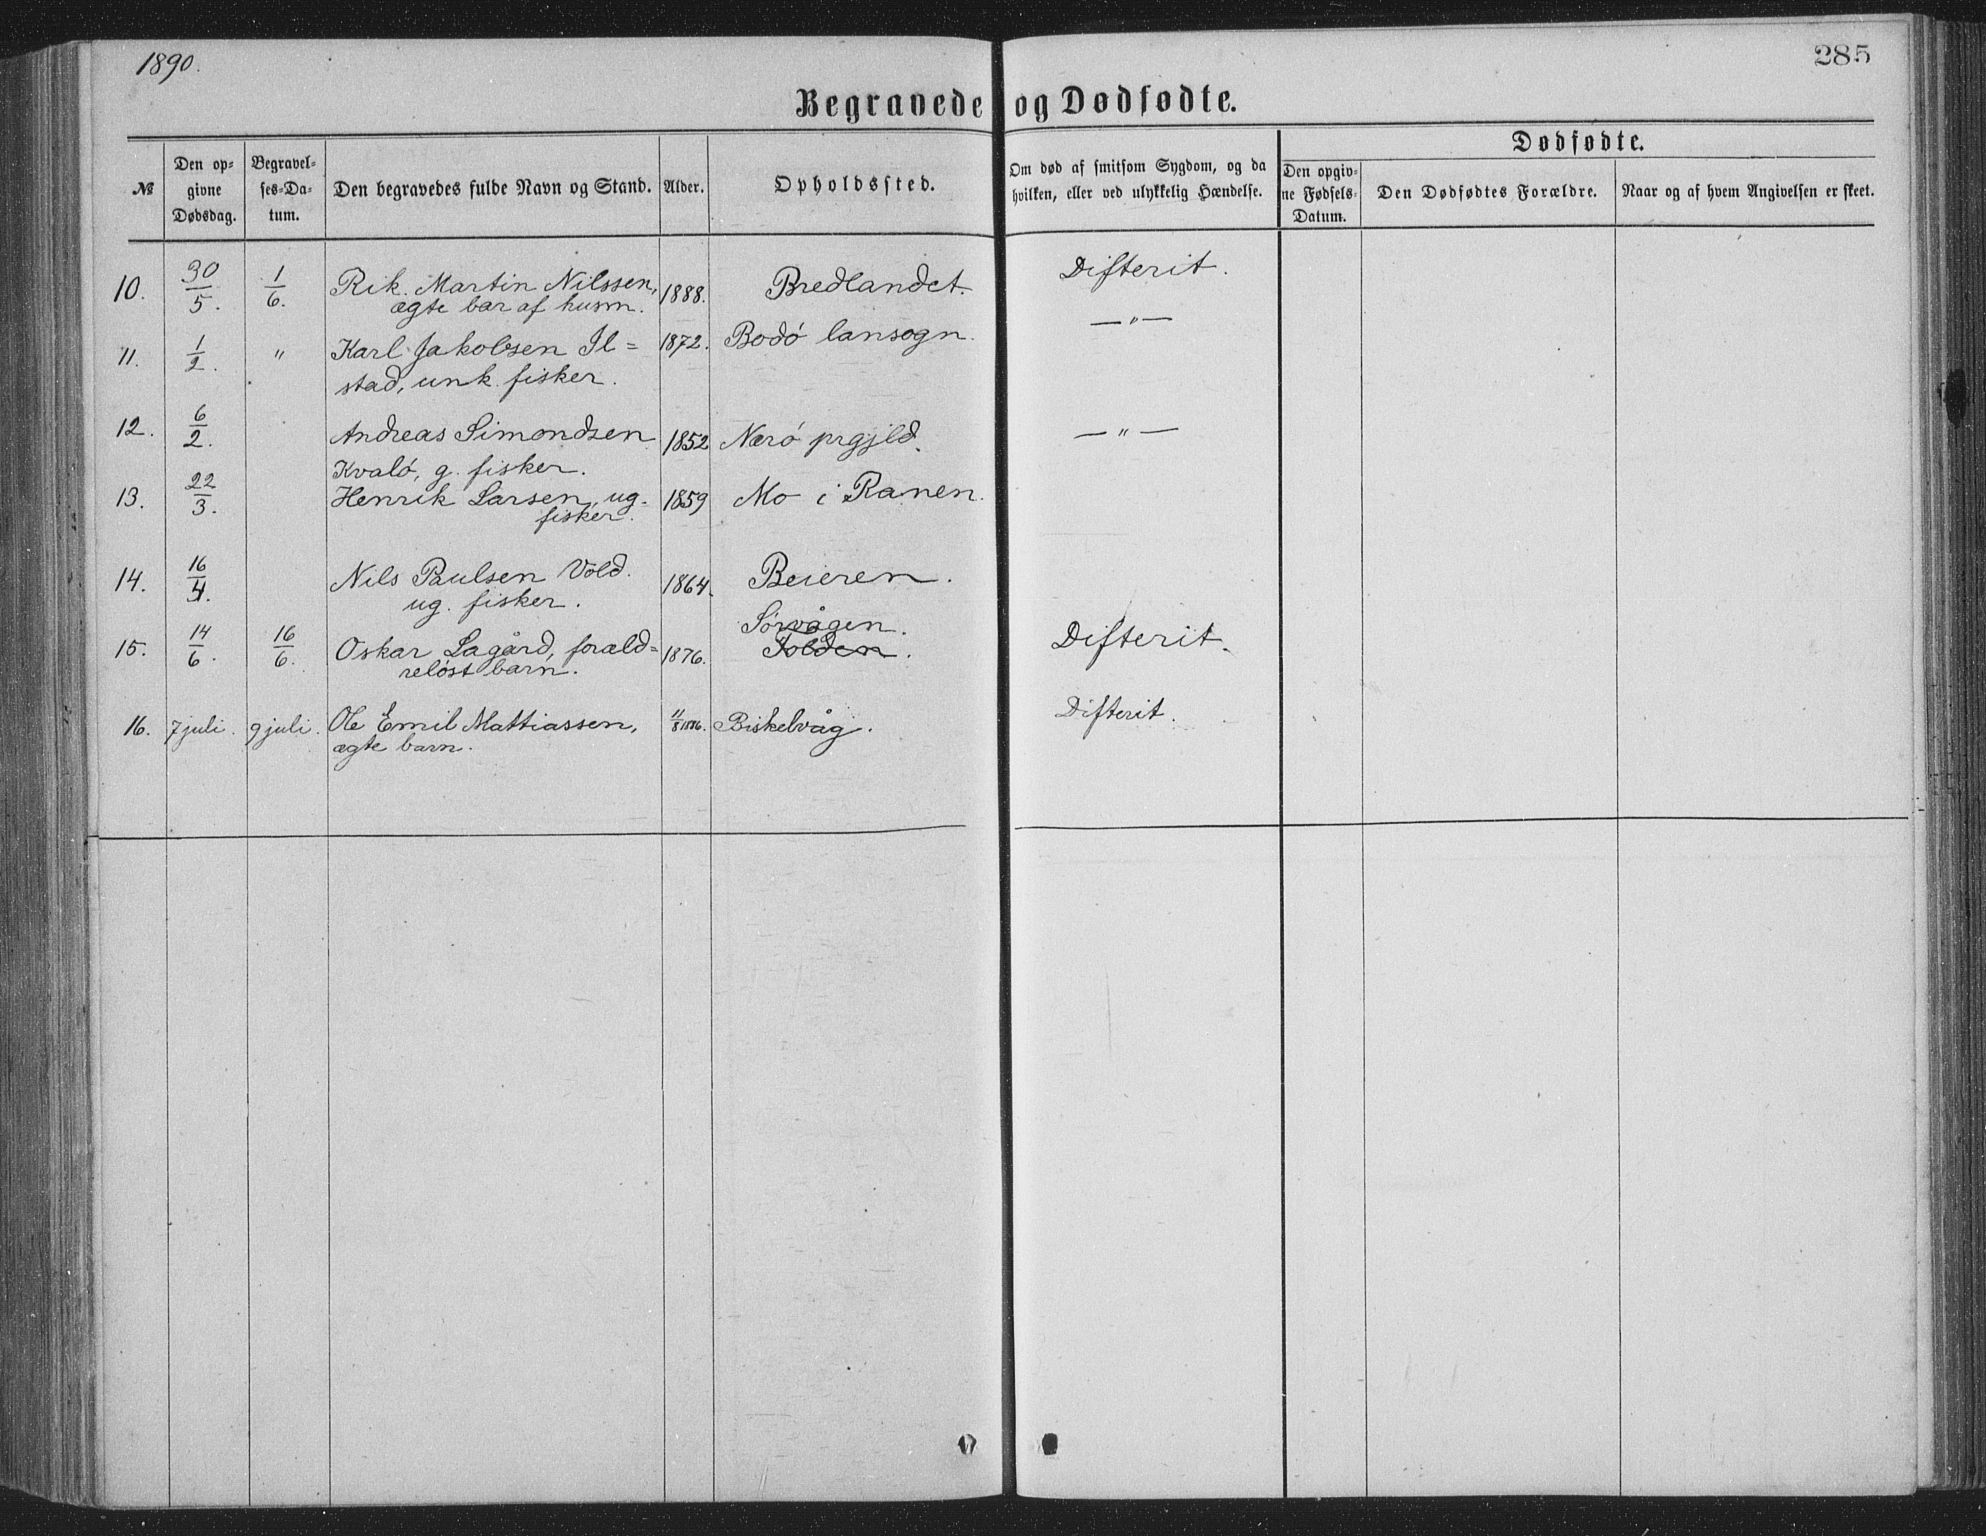 1890.
285
Begravede og Dødfødte.
Dødfødte.
№
Den op-
givne
Dødsdag.
Begravel-
ses-Da-
tum.
Den begravedes fulde Navn og Stand.
Alder.
Opholdssted.
Om død af smitsom Sygdom, og da
hvilken, eller ved ulykkelig Hændelse.
Den opgiv-
ne Fødsels-
Datum.
Den Dødfødtes Forældre.
Naar og af hvem Angivelsen er skeet.
10. 30/5. 1/6. Rik. Martin Nilssen, 1888. Bredlandet. Difterit.
ægte bar af husm.
11. 1/2. " Karl Jakobsen Il= 1872. Bodó lansogn. — " —
stad, unk. fisker.
12. 6/2. Andreas Simondsen 1852 Næró prgjld. — " —
Kvaló, g. fisker.
13. 22/3. Henrik Larsen, ug. 1859 Mo i Ranen.
fisker.
14. 16/4. Nils Paulsen Vold. 1864. Beieren.
ug. fisker.
Sórvågen.
15. 14/6. 16/6. Oskar Lagård, foræld= 1876. Folden. Difterit.
relóst barn.
16. 7 juli. 9 juli. Ole Emil Mattiassen, 11/8 1876. Biskelvåg. Difterit.
ægte barn.